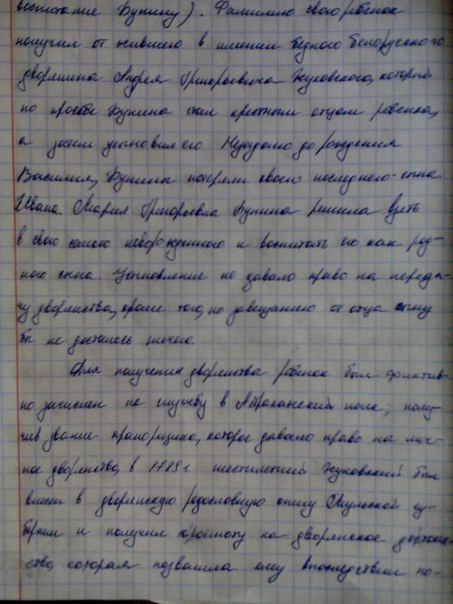 воспитание Бунину). Фамилию свою ребенок
получил от жившего в имении бедного белорусского
дворянина Андрея Григорьевича Жуковского, который
по просьбе Бунина стал крестным отцом ребенка,
а затем усыновил его. Незадолго до рождения
Василия, Бунины потеряли своего последнего сына
Ивана. Мария Григорьевна Бунина решила взять
в свою семью новорожденного и воспитать его как род-
ного сына. Усыновление не давало право на переда-
чу дворянства, кроме того, по завещанию от отца сыну
бы не досталось ничего.
Для получения дворянства ребенок был фиктив-
но зачислен на службу в Астраханский полк; полу-
чив звание прапорщика, которое давало право на лич-
ное дворянство, в 1789 г шестилетний Жуковский был
внесен в дворянскую родословную книгу Тульской гу-
бернии и получил грамоту на дворянское достоин-
ство, которая позволила ему впоследствии по-